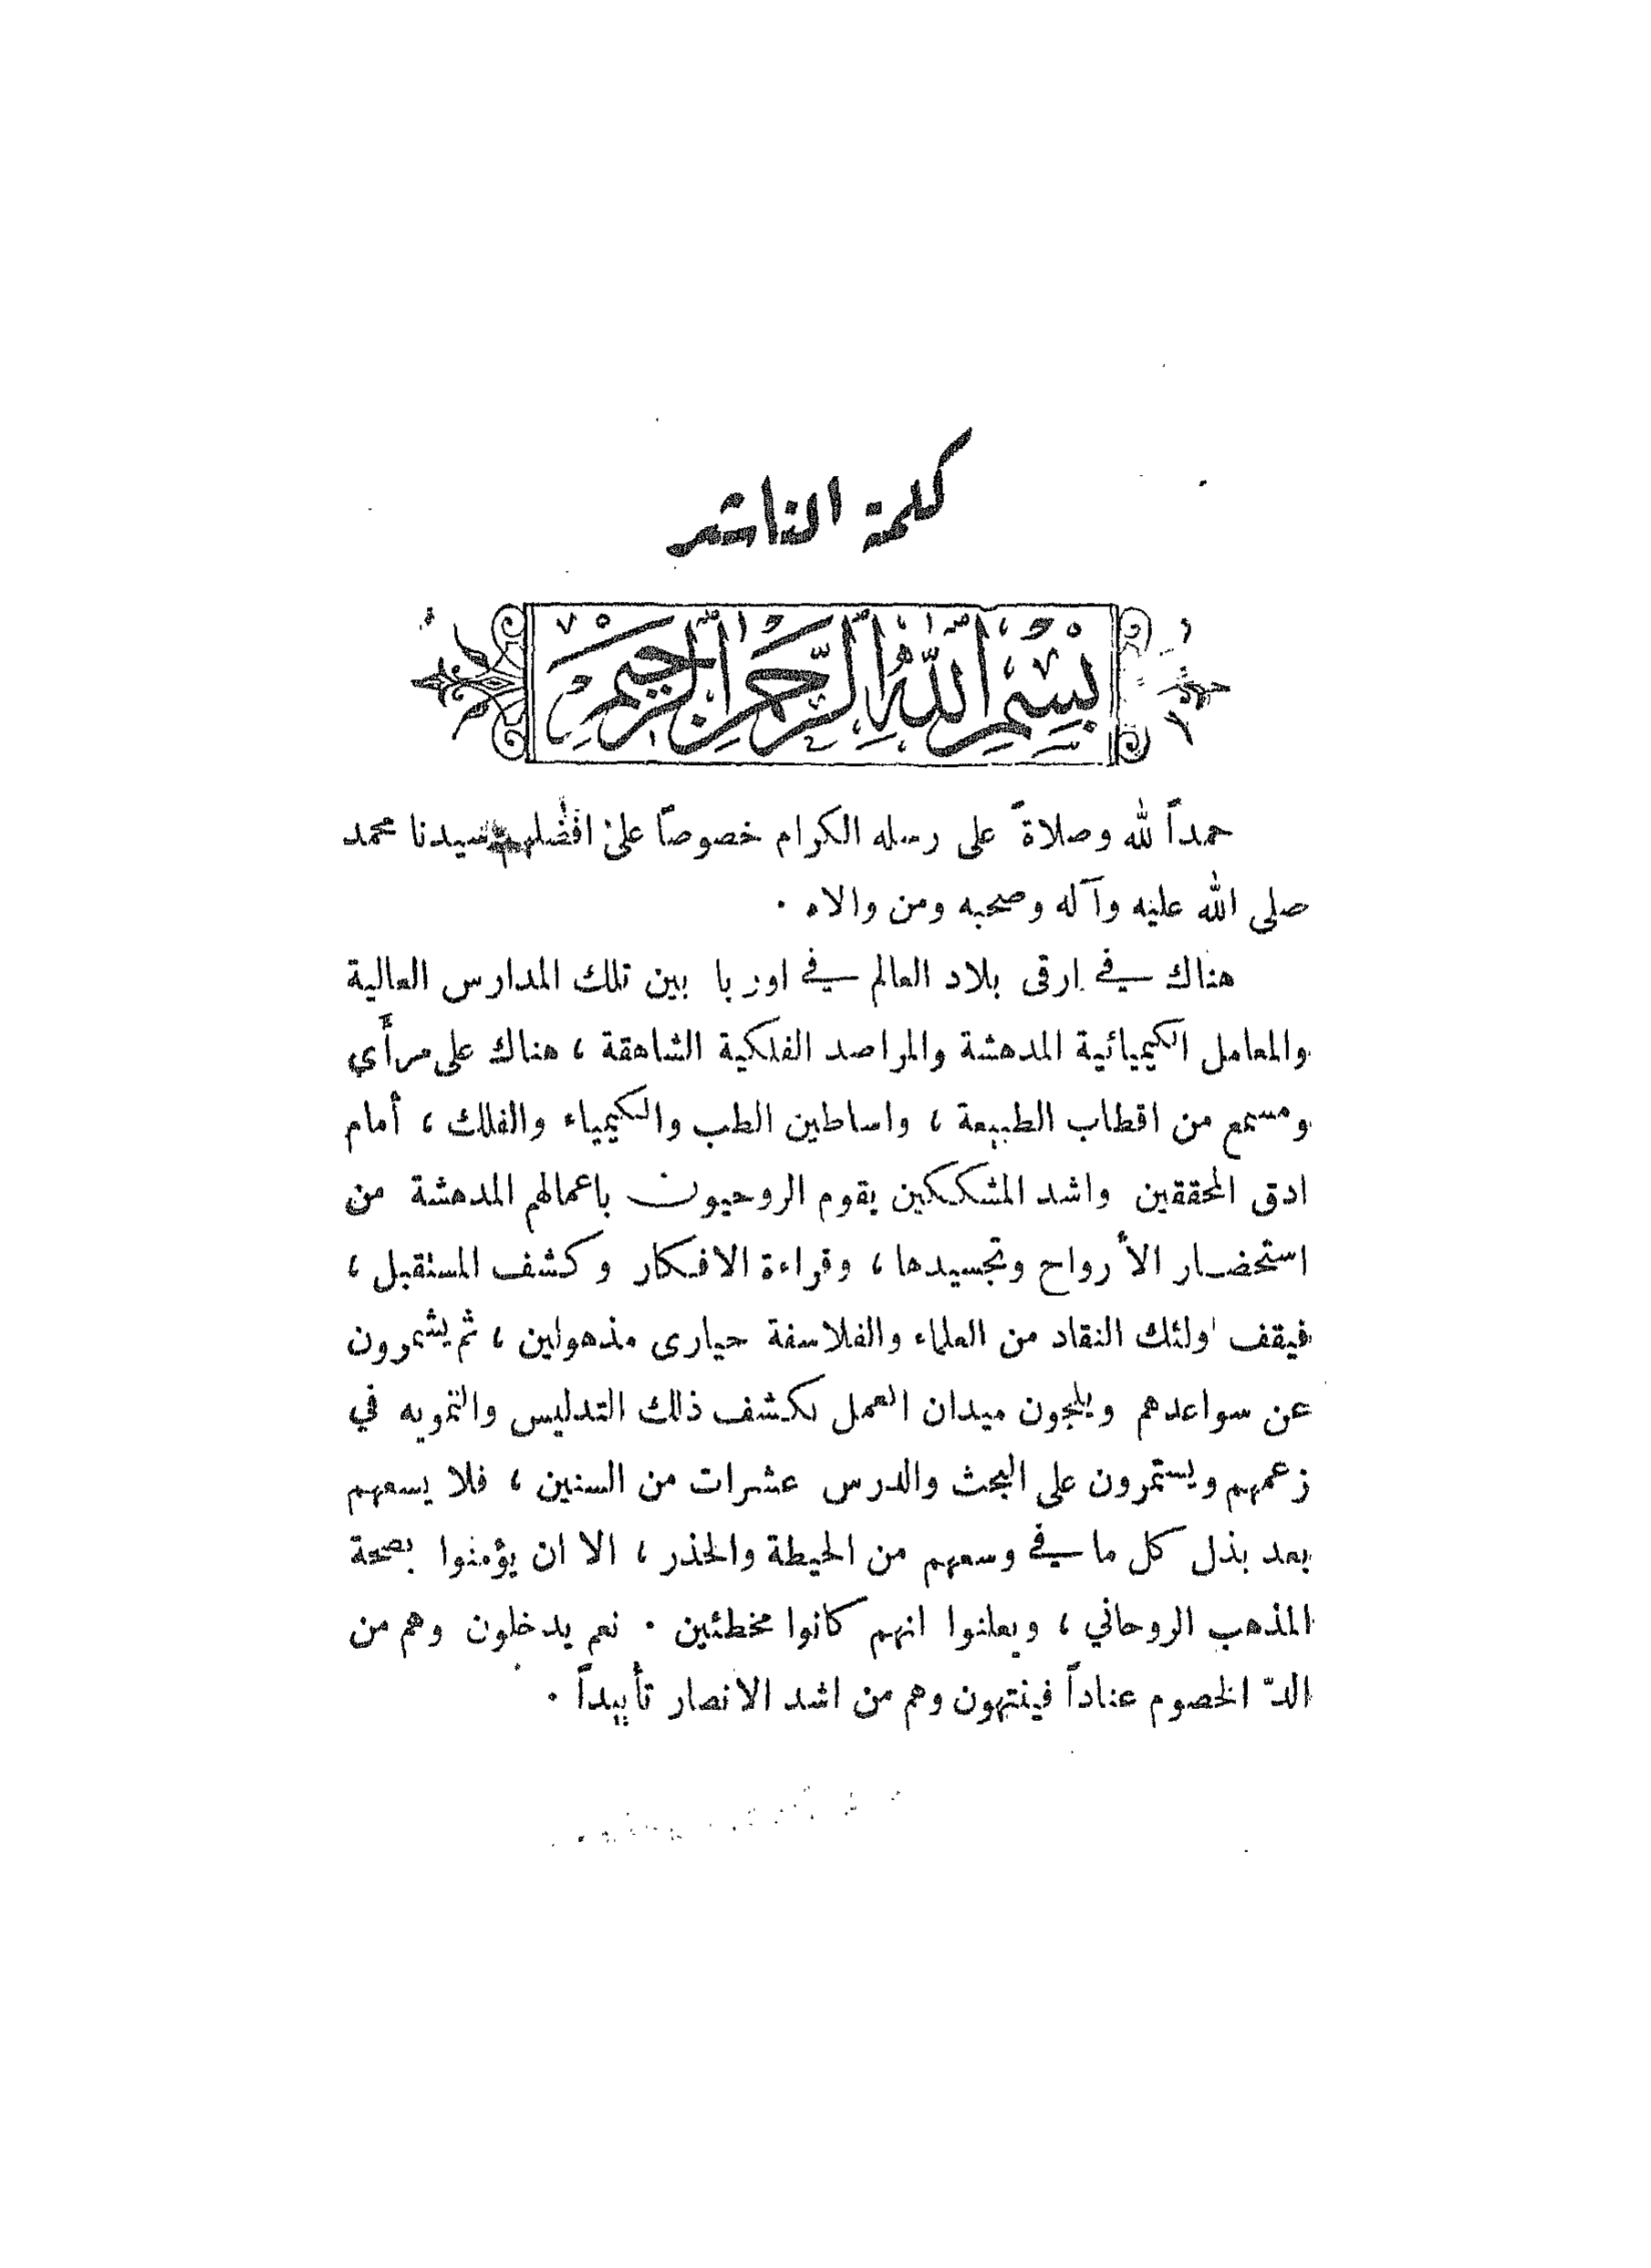 كلمة الناشر
بِسْمِ اللَّهِ الرَّحْمَنِ الرَّحِيمِ
حمداً لله وصلاةً على رسله الكرام خصوصاً على افضلهم سيدنا محمد
صلى الله عليه وآله وصحبه ومن والاه .
هناك في ارقى بلاد العالم في اوربا بين تلك المدارس العالية
والمعامل الكيميائية المدهشة والمراصد الفلكية الشاهقة ، هناك على مرأًى
ومسمع من اقطاب الطبيعة ، واساطين الطب والكيمياء والفلك ، أمام
ادق المحققين واشد المشككين يقوم الروحيون باعمالهم المدهشة من
استحضار الأرواح وتجسيدها ، وقراءة الافكار وكشف المستقبل ،
فيقف اولئك النقاد من العلماء والفلاسفة حيارى مذهولين ، ثم يشمرون
عن سواعدهم ويلجون ميدان العمل لكشف ذلك التدليس والتمويه في
زعمهم ويستمرون على البحث والدرس عشرات من السنين ، فلا يسعهم
بعد بذل كل ما في وسعهم من الحيطة والحذر ، الا ان يؤمنوا بصحة
المذهب الروحاني ، ويعلنوا انهم كانوا مخطئين . نعم يدخلون وهم من
الدّ الخصوم عناداً فينتهون وهم من اشد الانصار تأييداً .